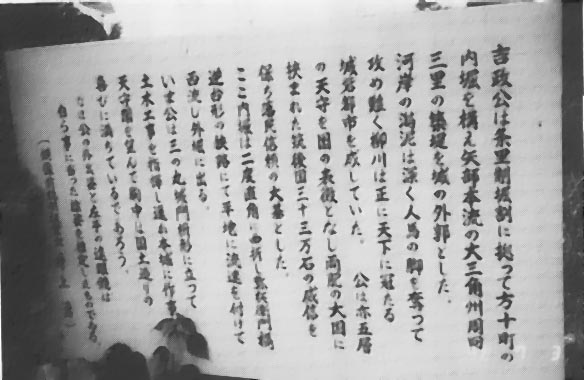 吉政公は条里制堀割に拠って方十町の
内堀を構え矢部本流の大三角州周囲
三里の 堤を城の外郭とした。
河岸の潟泥は深く人馬の脚を奪って
攻め難く柳川は正に天下に冠たる
城砦都市を成していた。 公は亦五層
の天守を国の表徴となし両度の大国に
挟まれた筑後国三十三万石の威信を
保ち落民信頼の大基とした。
ここ内堀は二度直角に曲折し 門橋
逆台形の狭路にて平地に流速を付けて
西流し外堀に出る。
いま公は三の丸坂門桝形に立って
土木工事を指揮し遥か本城に作事
天守閣を望んで胸中は国土造りの
喜びに満ちているであろう。
なほ公の外 姿と左手の遠眼鏡は
自ら事に当った 姿を したものである。